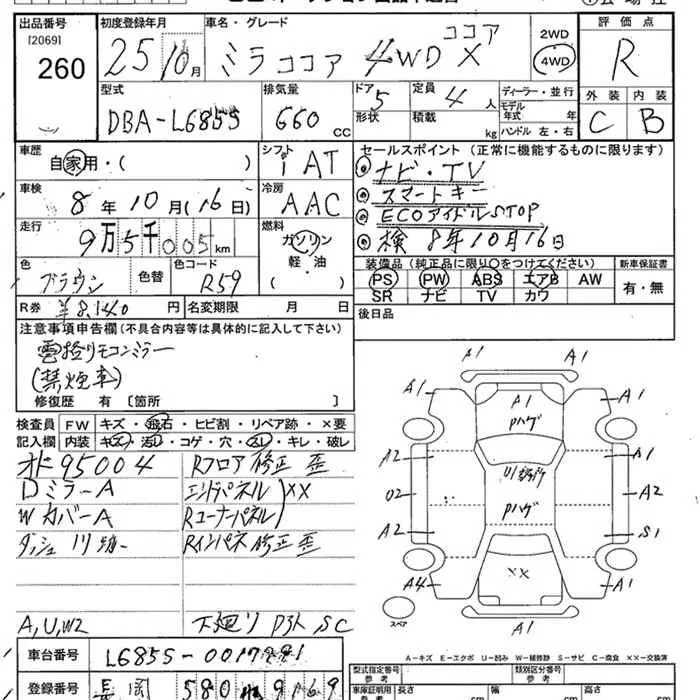 出品番号
[2069]
260
初度登録年月
25 10月
車名・グレード
ミラココア 4WD ココア X
2WD
4WD
評価点
R
外装 内装
C B
型式
DBA-L685S
排気量
660 cc
ドア 5
形状
定員 4 人
積載 kg
ディーラー・並行
モデル年式 年
ハンドル 左・右
車歴
自家用・( )
シフト
AT
車検
8年 10月(16日)
冷房
AAC
走行
9万5千005km
燃料
ガソリン
軽・油
色
ブラウン
色替
色コード
R59
R券 ¥8,140円
名変期限 月 日
セールスポイント(正常に機能するものに限ります)
ナビ・TV
スマートキー
ECOアイドルSTOP
検 8年10月16日
装備品(純正品に限り○をつけてください)
PS PW ABS エアB AW
SR ナビ TV カワ
新車保証書
有・無
後日品
注意事項申告欄(不具合内容等は具体的に記入して下さい)
リモコンミラー
(禁煙車)
修復歴 有 [箇所 ]
検査員記入欄
FW キズ・飛石・ヒビ割・リペア跡・×要
内装 キズ・汚レ・コゲ・穴・スレ・キレ・破レ
オド95004
Dミラー A
Wカバー A
ダッシュ
A,U,W2
Rフロア 修正 歪
エンドパネル XX
Rコーナーパネル
Rインパネ 修正 歪
下廻り SC
A1
A1
A1
A1
A1
Pハゲ
A2
A1
U1
U2
Pハゲ
A2
A2
S1
XX
A4
A1
A1
スペア
A=キズ E=エクボ U=凹み W=補修跡 S=サビ C=腐食 XX=交換済
車台番号
登録番号
型式指定番号
参考
類別区分番号
参考
車庫証明用
参考
長さ
cm
幅
cm
高さ
cm